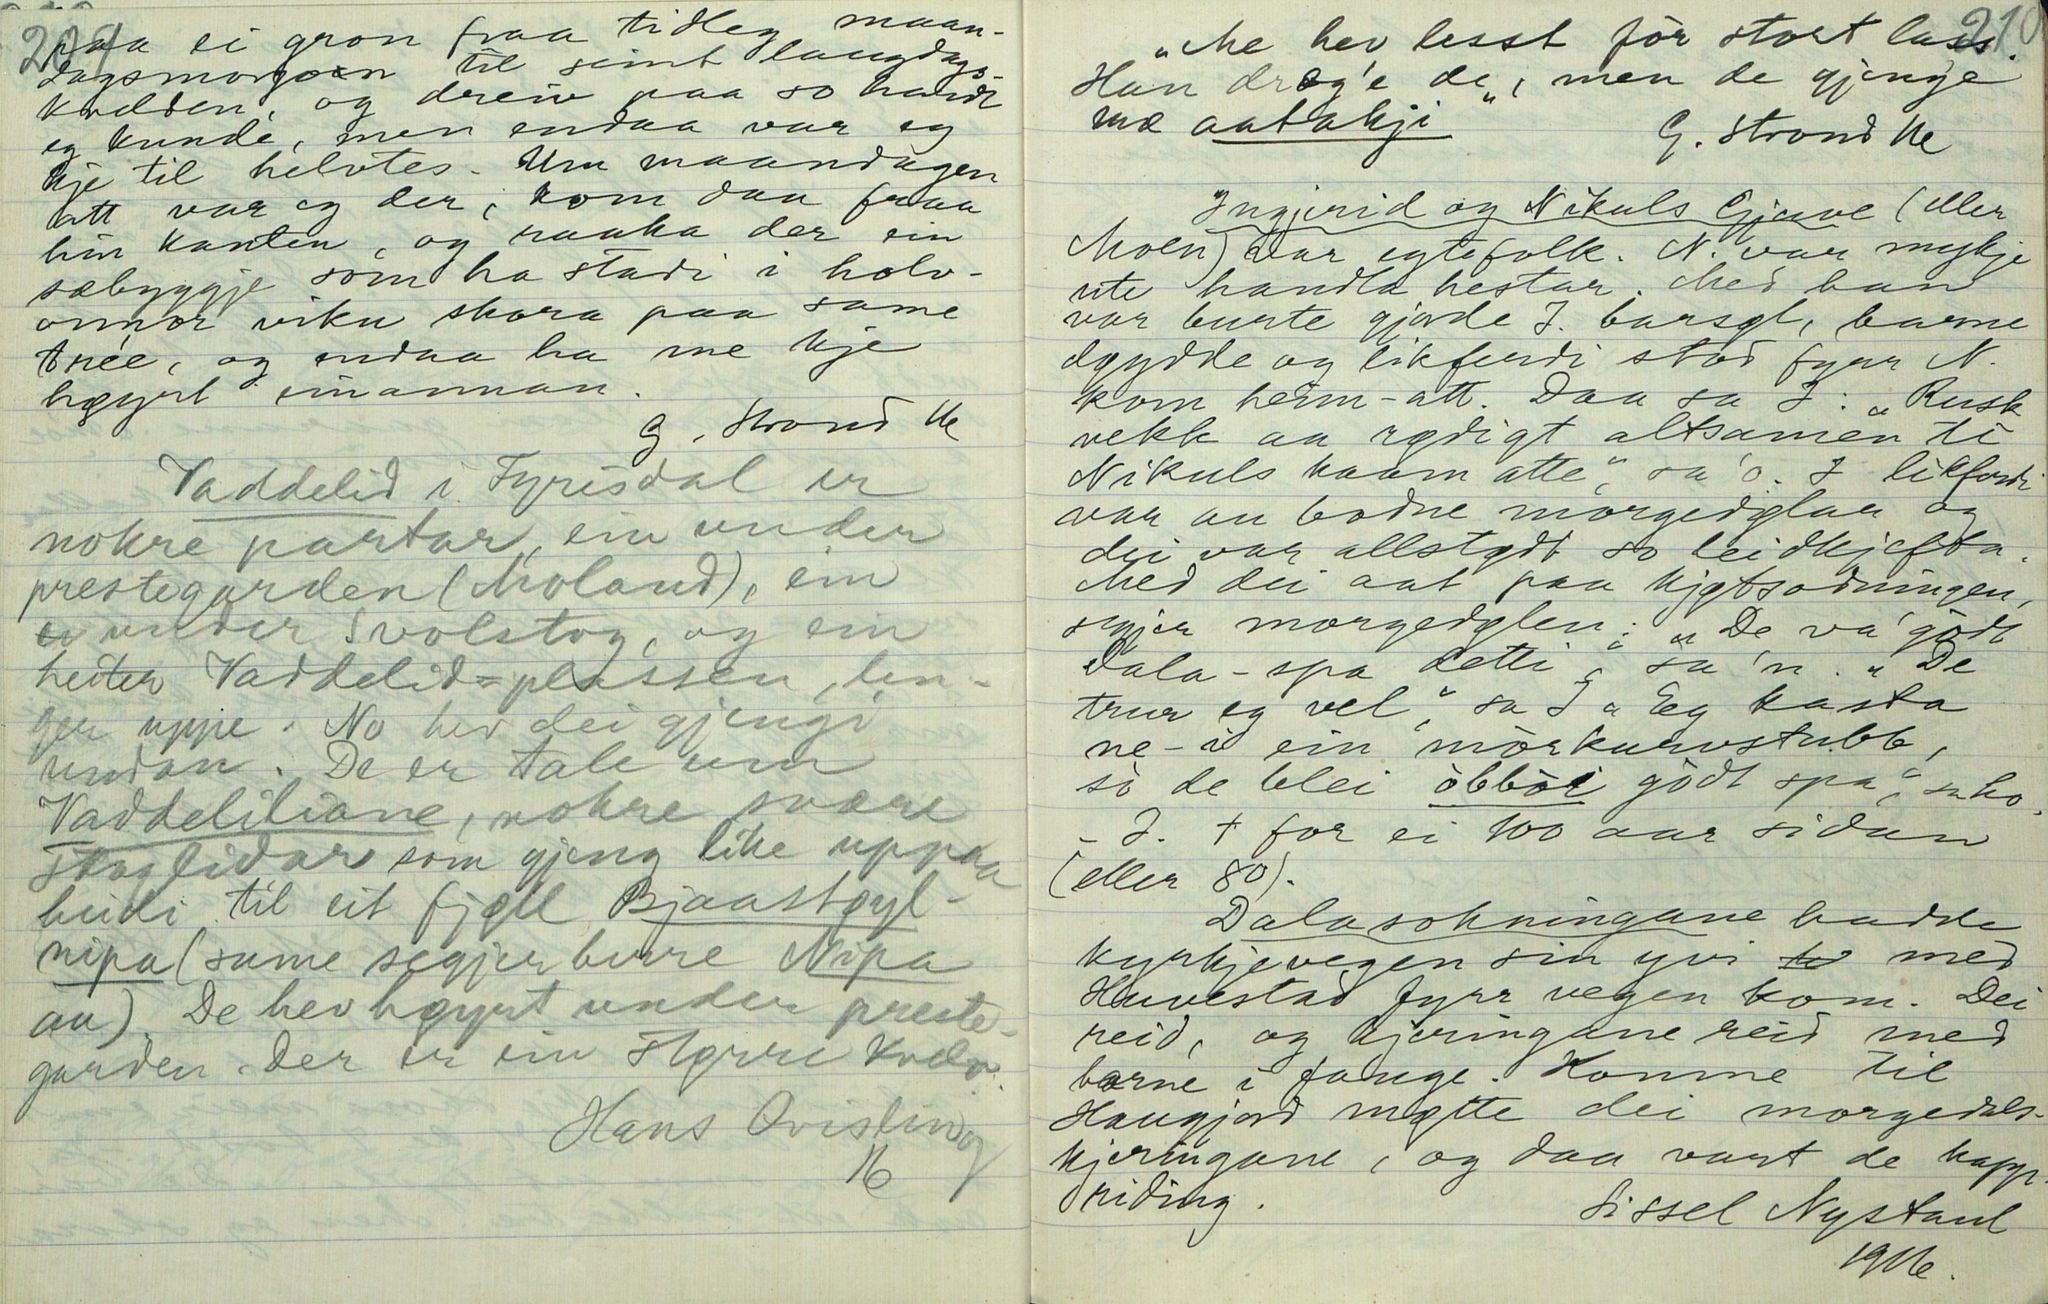 209
paa ei gron fraa tidleg maan-
dagsmorgon til seint laugdags-
kvelden, og dreiv paa so hardt
eg kunde, men endaa var eg
kje til helvtes. Um maandagen
att var eg der, kom daa fraa
hin kanten, og raaka der ein
sæbyggje som ha stadi i holv-
onnor viku skora paa same
trée, og endaa ha me kje
høyrt einannan.
G. Strond 16
Vaddelid i Fyrisdal er
nokre partar, ein under
prestegarden (Moland), ein
under Svolstog, og ein
heiter Vaddelid-plassen, len-
ger uppe. No hev dei gjengi
undan. De er tale um
Vaddeliliane, nokre svære
skoglidar som gjeng like uppaa
heidi til eit fjøll Bjaastøyl-
nipa (sume segjer berre Nipa
au). De hev høyrt under preste-
garden. Der er ein større kvelv.
Hans Qvisling
16
210
"Me hev lesst för stort lass.
Han drog'e de, men de gjenge
mæ aatakji"
G. Strond 16
Ingjerid og Nikuls Gjave (eller
Moen) var egtefolk. N. var mykje
ute handla hestar. Med han
var burte gjorde J. barsøl, barne
døydde og likferdi stod fyrr N.
kom heim-att. Daa sa J: "Rusk
vekk aa rødigt altsamen ti
Nikuls kaam atte", sa'o. I likferdi
var au bodne morgedølar og
dei var allstødt so leidkjefta.
Med dei aat paa kjøtsodningen,
segjer morgedølen: "De va' gödt
Dala-spa detti", sa'n. "De
trur eg vel", sa J "Eg kasta
ne-i ein mörkurvstubb,
sö de blei öbböi gödt spa", sa ho.
- J. † for ei 100 aar sidan
(eller 80).
Dalasokningane hadde
kyrkjevegen sin yvi med
Huvestad fyrr vegen kom. Dei
reid, og kjeringane reid med
borne i fange. Komme til
Haugjord møtte dei morgedals-
kjeringane, og daa vart de kapp-
riding.
Sissel Nystaul
1916.